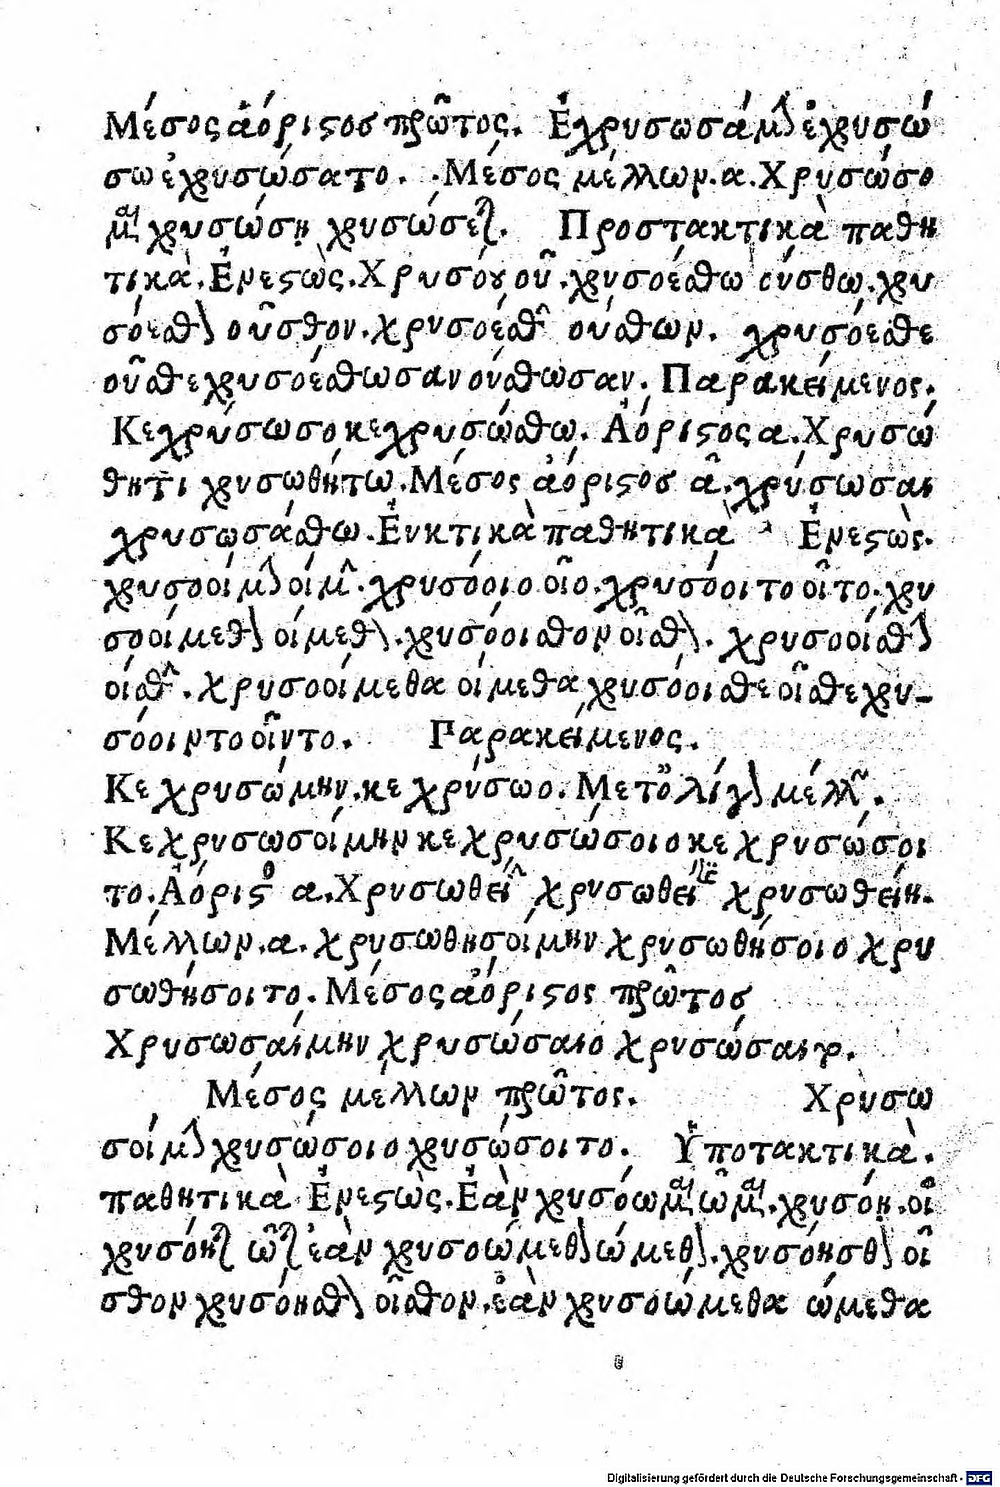 Μέσος ἀόριστος πρῶτος. Ἐχρυσωσάμην ἐχρυσώ
σω ἐχρυσώσατο. Μέσος μέλλων. α. Χρυσώσο
μαι χρυσώση χρυσώσεται. Προστακτικὰ παθη
τικὰ. Ἐνεστὼς. Χρυσόου οῦ. χρυσοέσθω ούσθω. χρυ
σόεσθον οῦσθον. χρυσοέσθων ούσθων. χρυσόεσθε
οῦσθε χρυσοέσθωσαν ούσθωσαν. Παρακείμενος.
Κεχρύσωσο κεχρυσώσθω. Ἀόριστος α. Χρυσώ
θητι χρυσωθήτω. Μέσος ἀόριστος α. χρύσωσαι
χρυσωσάσθω. Ἐυκτικὰ παθητικὰ Ἐνεστὼς.
χρυσοοίμην οίμην. χρυσόοιο οῖο. χρυσόοιτο οῖτο. χρυ
σοοίμεθον οίμεθον. χρυσόοισθον οῖσθον. χρυσοοίσθην
οίσθην. χρυσοοίμεθα οίμεθα χρυσόοισθε οῖσθε χρυ-
σόοιντο οῖντο. Παρακείμενος.
Κεχρυσώμην. κεχρύσωο. Μετ' ὀλίγον μέλλων.
Κεχρυσωσοίμην κεχρυσώσοιο κεχρυσώσοι
το. Ἀόριστος α. Χρυσωθείην χρυσωθείης χρυσωθείη.
Μέλλων. α. χρυσωθησοίμην χρυσωθήσοιο χρυ
σωθήσοιτο. Μέσος ἀόριστος πρῶτος
Χρυσωσαίμην χρυσώσαιο χρυσώσαιτο.
Μέσος μέλλων πρῶτος. Χρυσω
σοίμην χρυσώσοιο χρυσώσοιτο. Ὑποτακτικὰ.
παθητικὰ Ἐνεστὼς. Ἐὰν χρυσόωμαι ῶμαι. χρυσόη. οῖ
χρυσόηται ῶται ἐὰν χρυσοώμεθον ώμεθον. χρυσόησθον οῖ
σθον χρυσόησθον οῖσθον. ἐὰν χρυσοώμεθα ώμεθα
Digitalisierung gefördert durch die Deutsche Forschungsgemeinschaft - DFG